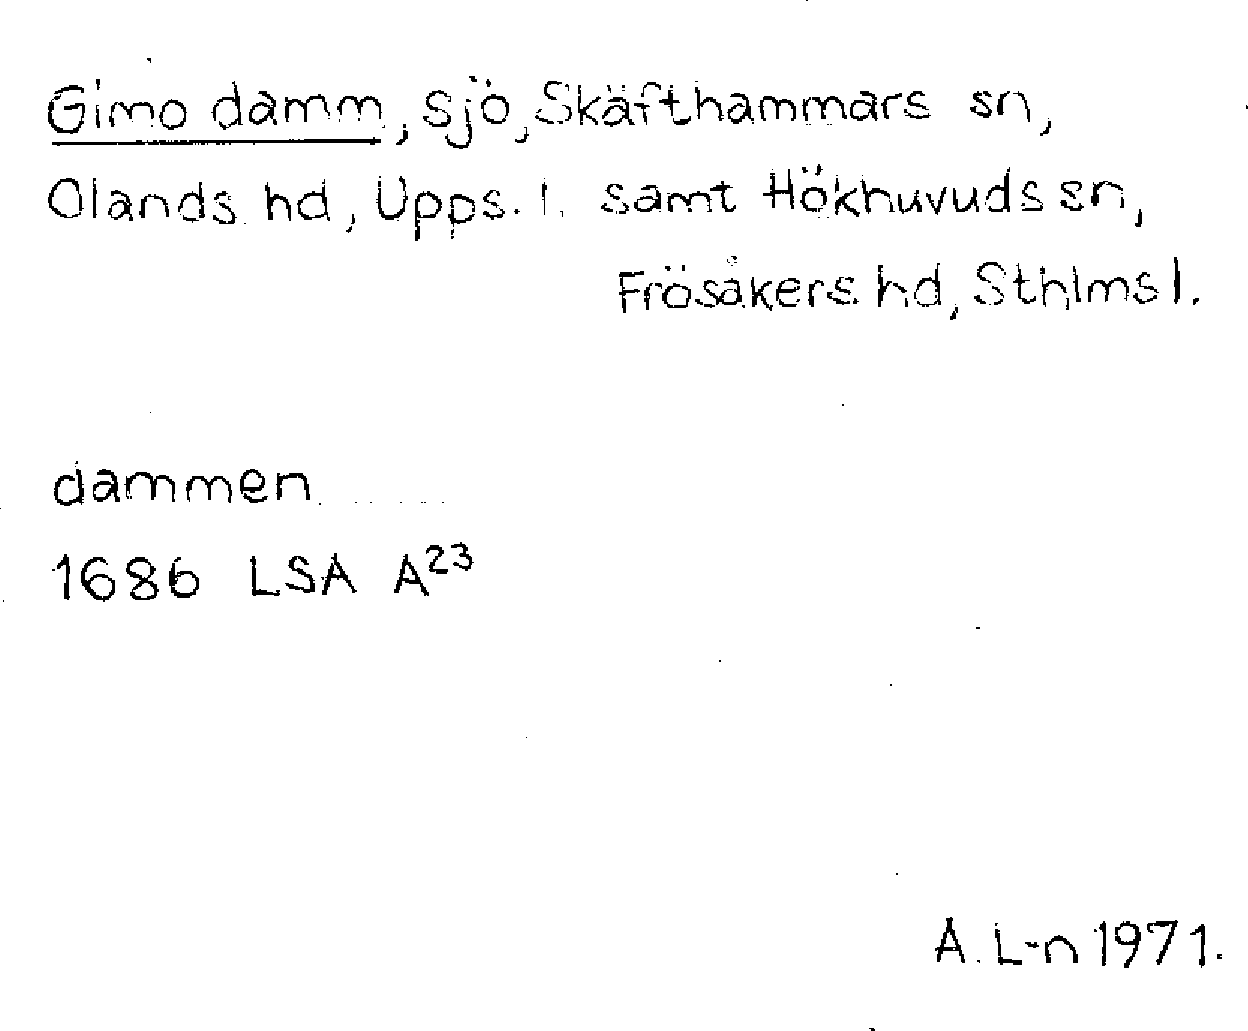 Gimo damm, sjö, Skäfthammars sn,
Olands hd, Upps. l. samt Hökhuvuds sn,
Frösåkers hd, Sthlms l.
dammen
1686 LSA A²³
A. L-n 1971.